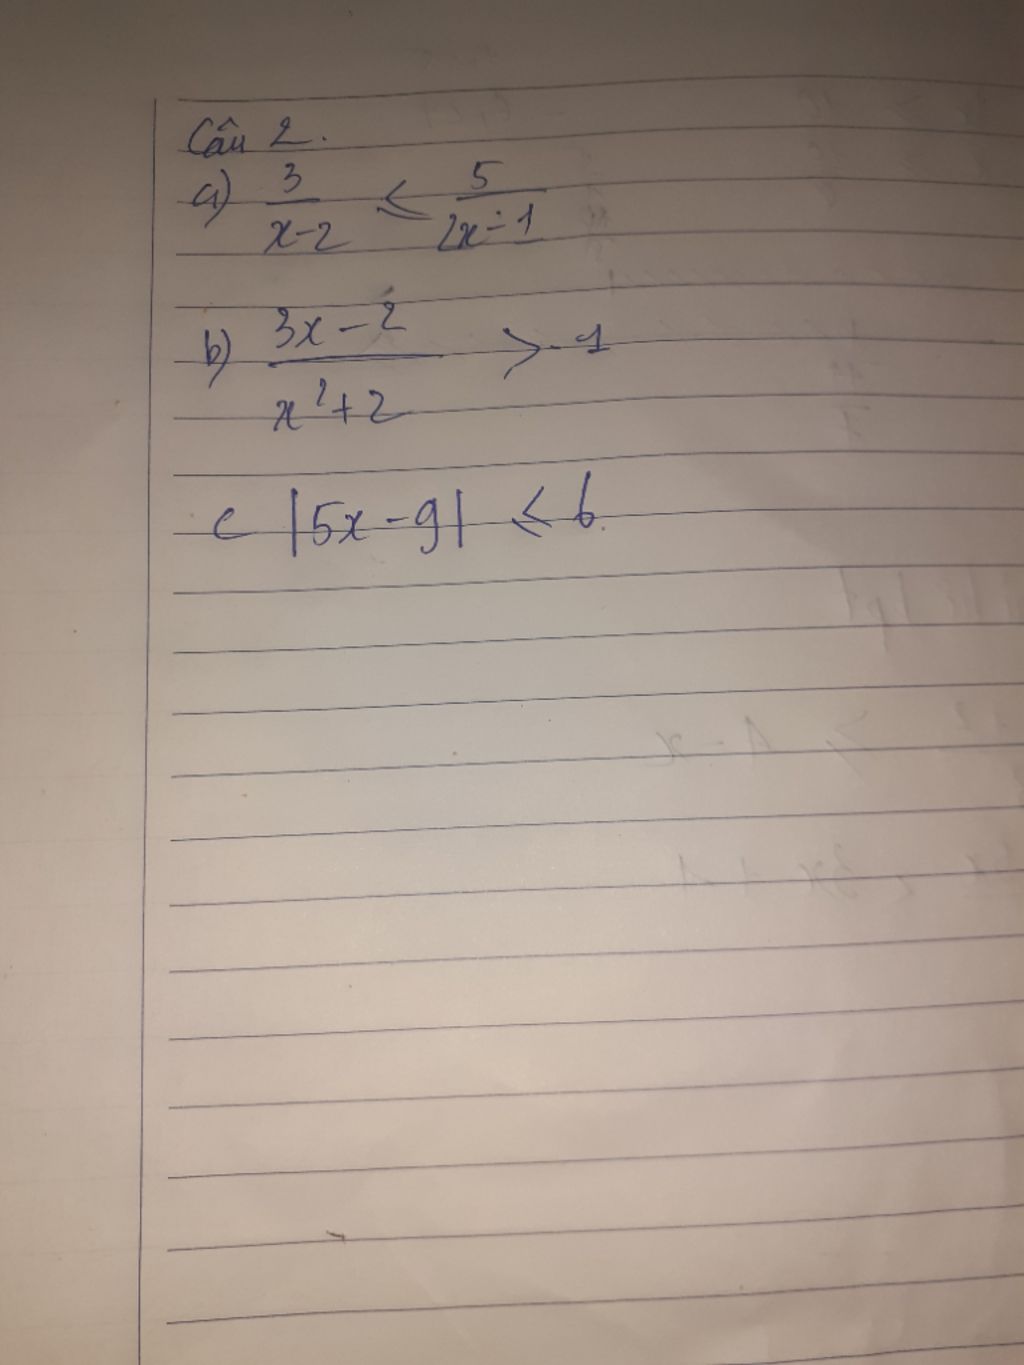 Câu 2.
a) 3/(x-2) ≤ 5/(2x-1)
b) (3x-2)/(x²+2) > -1
c |5x-9| ≤ 6